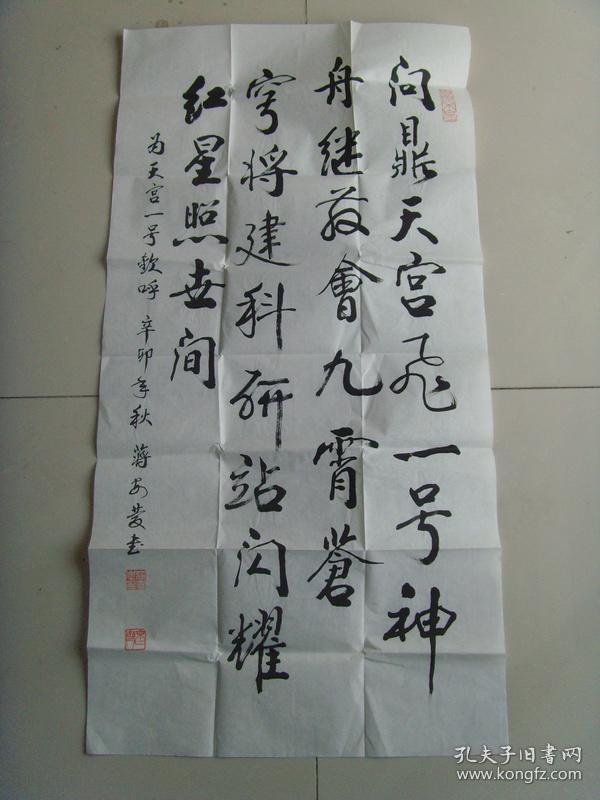 问鼎天宫飞一号神
舟继发會九霄蒼
穹将建科研站闪耀
红星照世间
为天宫一号欢呼 辛卯年秋 蒋书
孔夫子旧书网
www.kongfz.com